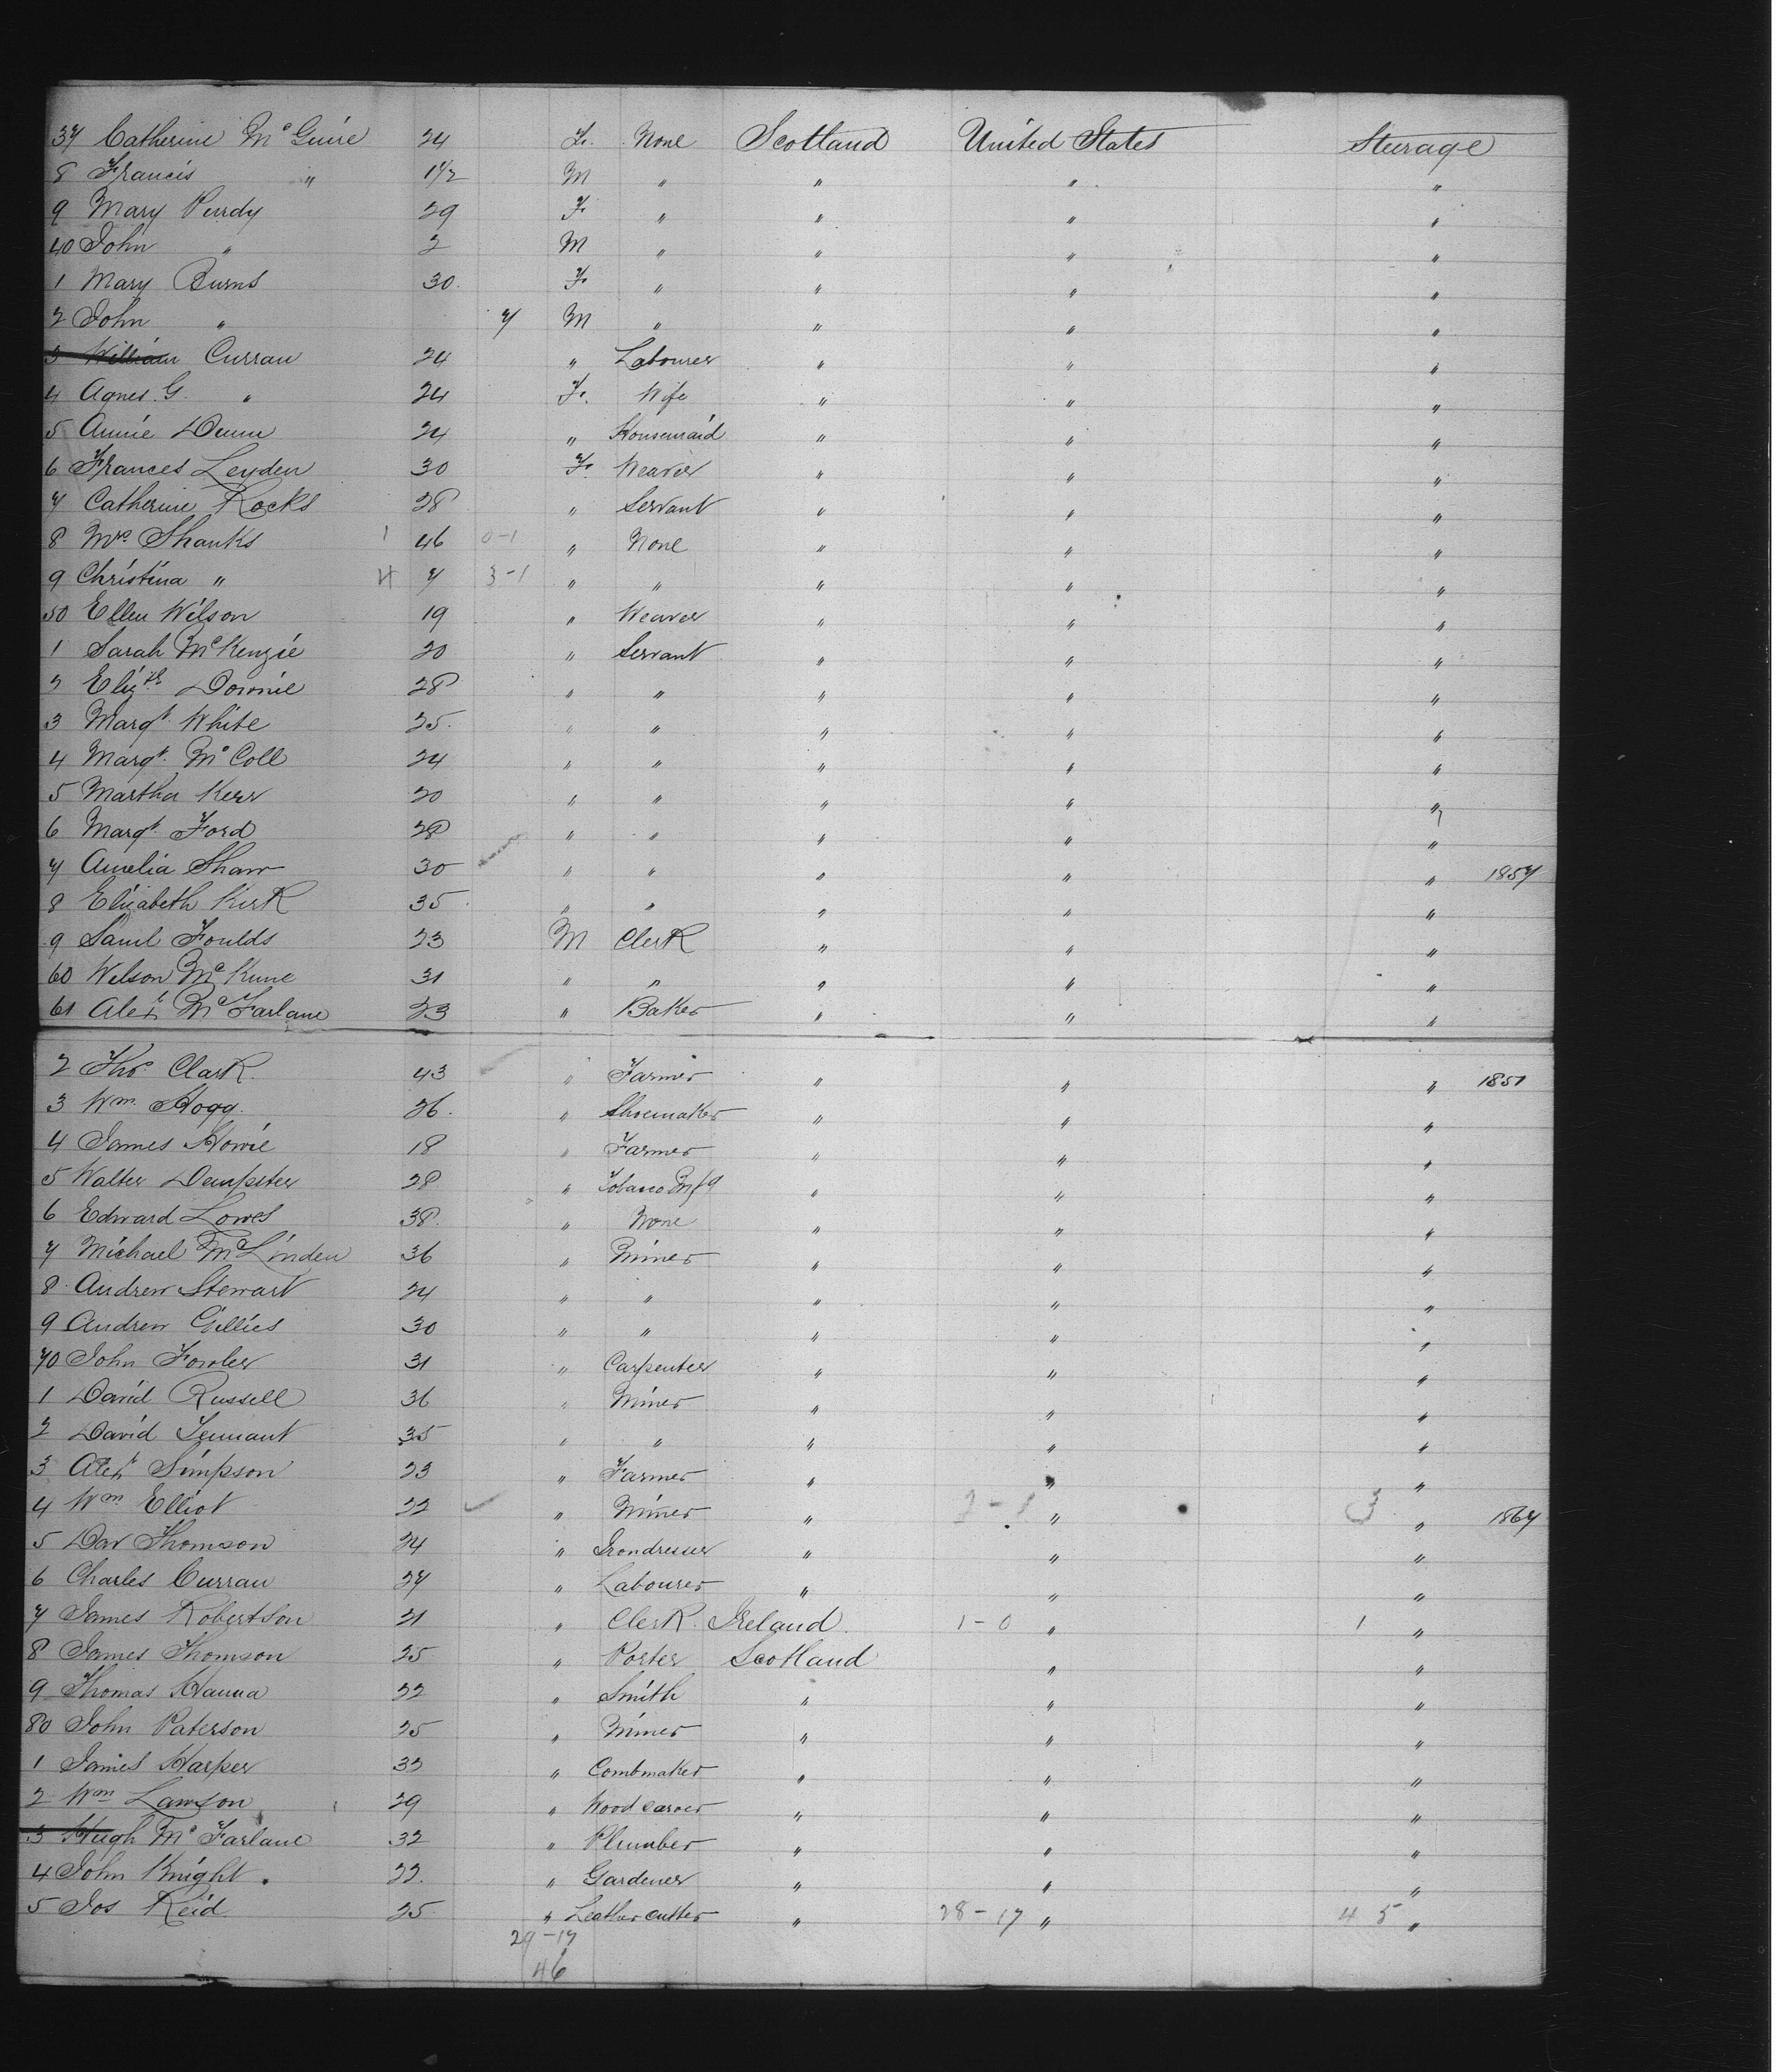 37 Catherine McGuire 24 F. None Scotland United States Steerage
8 Francis " 1 1/2 M " " " "
9 Mary Purdy 29 F " " " "
40 John " 2 M " " " "
1 Mary Burns 30 F " " " "
2 John " 7 M " " " "
3 William Curran 24 " Labourer " " "
4 Agnes G. " 24 F. Wife " " "
5 Annie Dunn 24 " Housemaid " " "
6 Frances Leyden 30 F. Weaver " " "
7 Catherine Rocks 28 " Servant " " "
8 Mrs Shanks 1 46 0-1 " None " " "
9 Christina " 4 7 3-1 " " " " "
50 Ellen Wilson 19 " Weaver " " "
1 Sarah McKenzie 20 " Servant " " "
2 Elizth Downie 28 " " " " "
3 Margt White 25 " " " " "
4 Margt McColl 24 " " " " "
5 Martha Kerr 20 " " " " "
6 Margt Ford 28 " " " " "
7 Amelia Shaw 30 " " " " " 1857
8 Elizabeth Kirk 35 " " " " "
9 Saml Foulds 23 M Clerk " " "
60 Wilson McKune 31 " " " " "
61 Alexr McFarlane 23 " Baker " " "
2 Thos Clark 43 " Farmer " " " 1851
3 Wm Hogg 26 " Shoemaker " " "
4 James Howie 18 " Farmer " " "
5 Walter Dempster 28 " Tobacco Mfg " " "
6 Edward Lowes 38 " None " " "
7 Michael McLinden 36 " Miner " " "
8 Andrew Stewart 24 " " " " "
9 Andrew Gillies 30 " " " " "
70 John Fowler 31 " Carpenter " " "
1 David Russell 36 " Miner " " "
2 David Tennant 35 " " " " "
3 Alexr Simpson 23 " Farmer " " "
4 Wm Elliot 22 " Miner " 2-1 " 3 " 1867
5 Dav Thomson 24 " Irondresser " " "
6 Charles Curran 27 " Labourer " " "
7 James Robertson 21 " Clerk Ireland 1-0 " 1 "
8 James Thomson 25 " Porter Scotland " "
9 Thomas Hanna 22 " Smith " " "
80 John Paterson 25 " Miner " " "
1 James Harper 32 " Combmaker " " "
2 Wm Lawson 29 " Wood carver " " "
3 Hugh McFarlane 32 " Plumber " " "
4 John Knight 22 " Gardener " " "
5 Jos Reid 25 " Leather cutter " 28-17 " 45 "
29-17
46